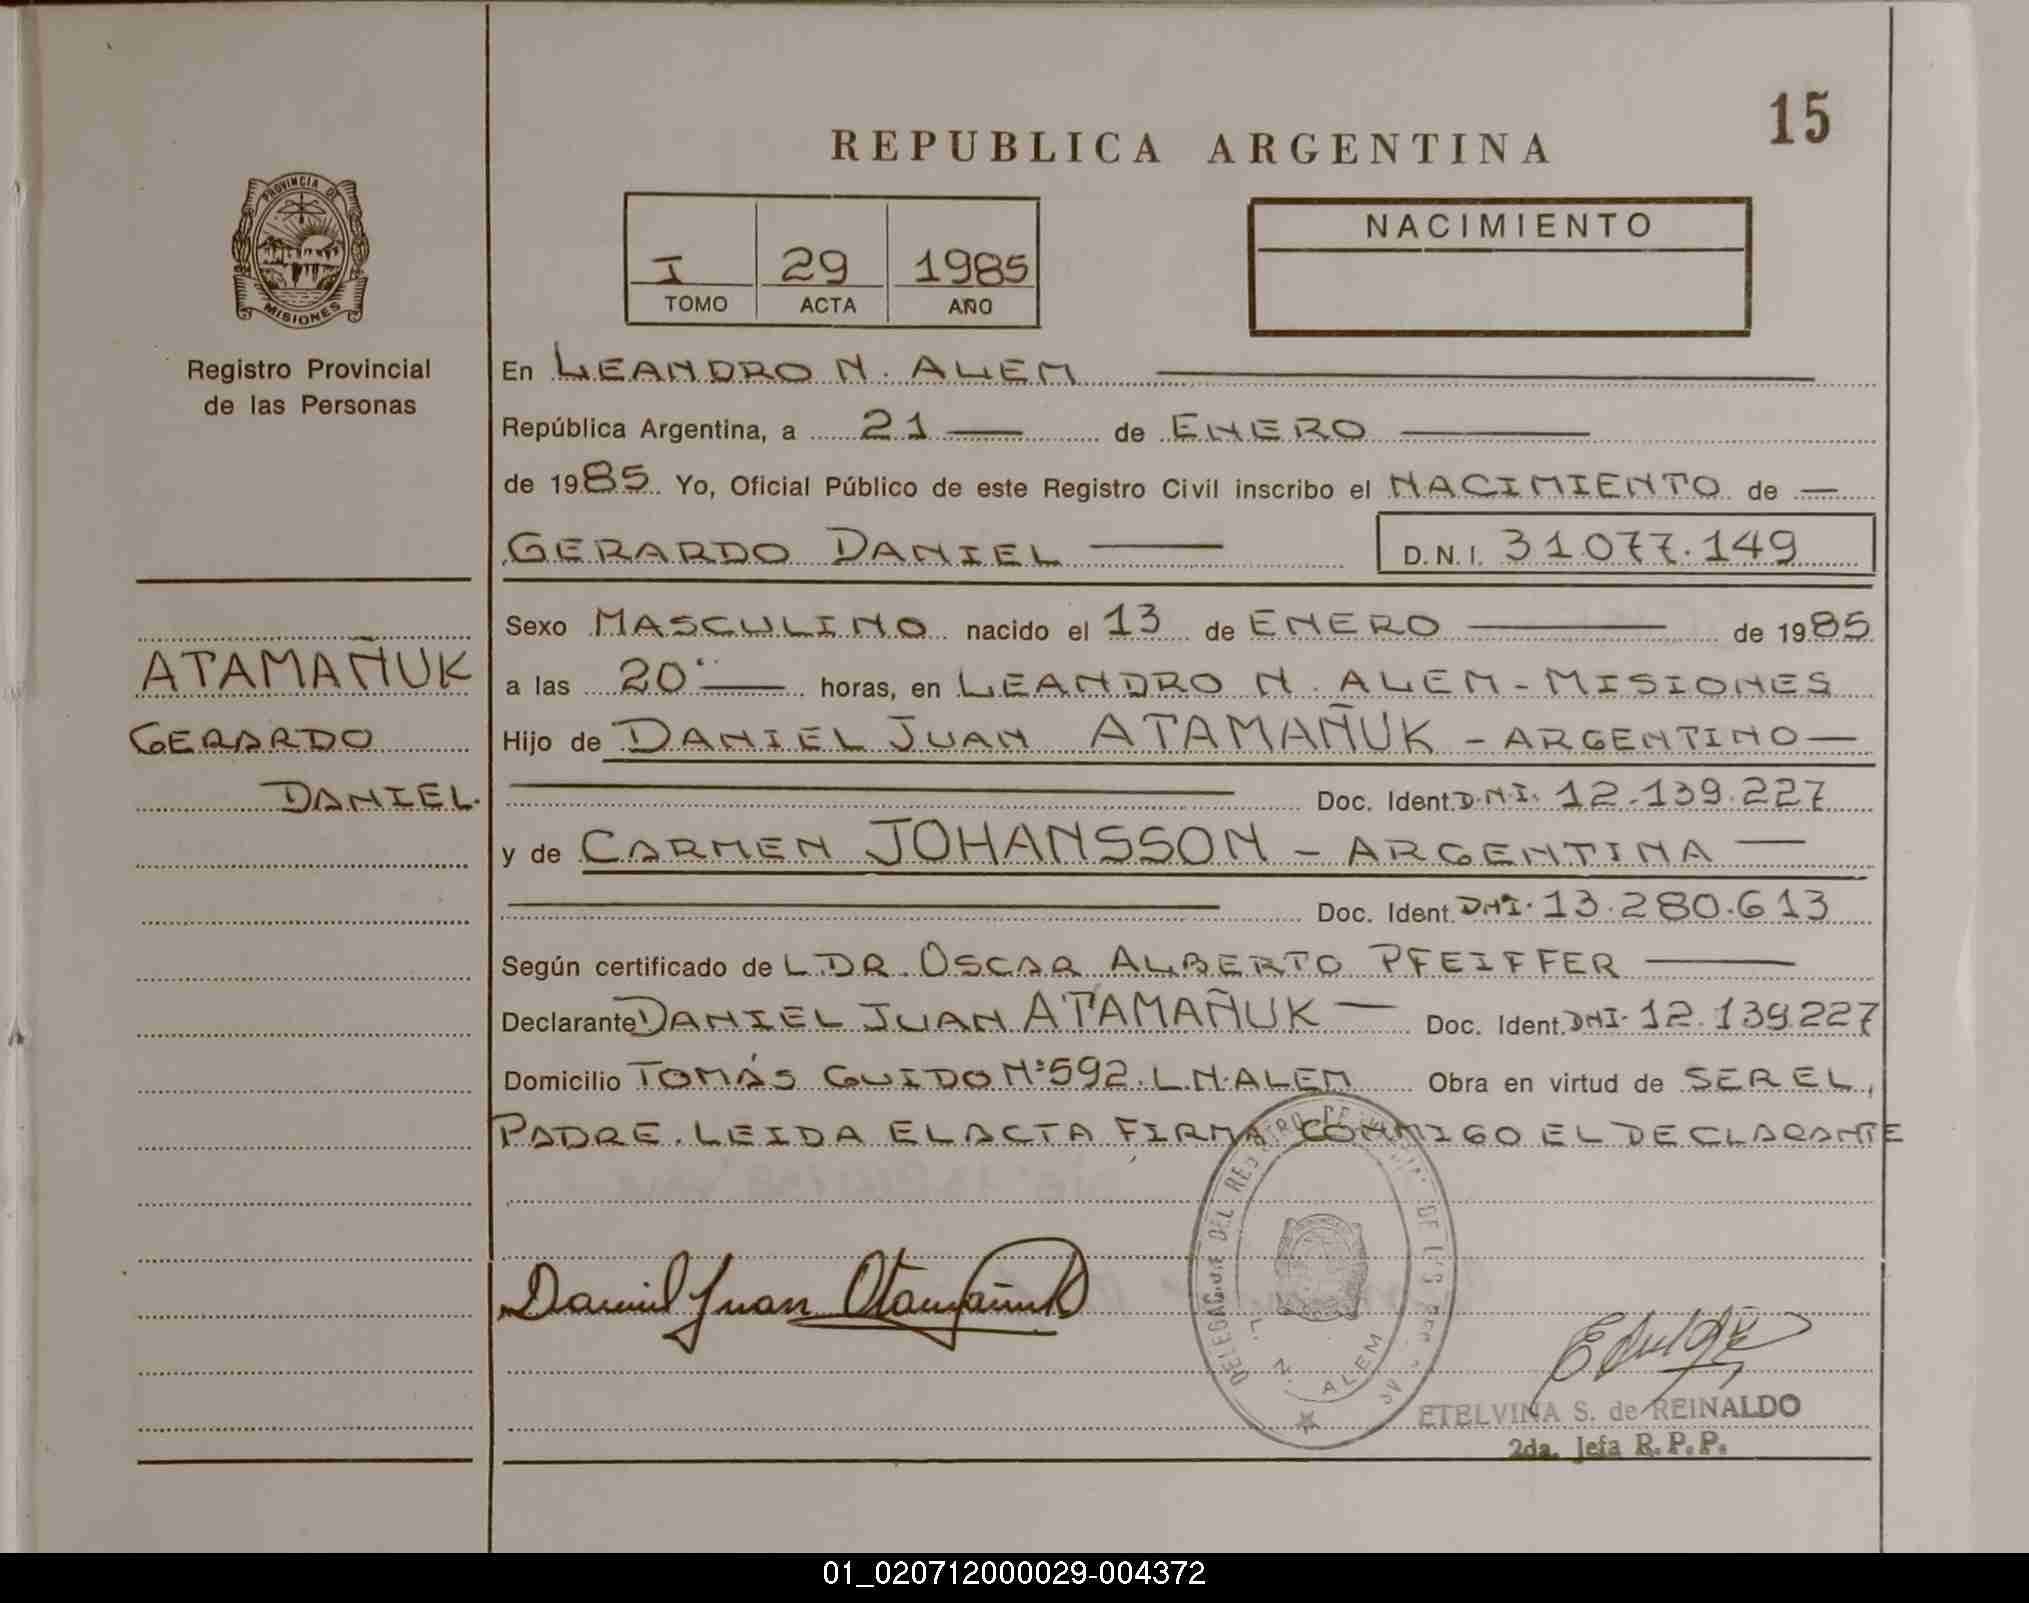 15
REPUBLICA ARGENTINA
PROVINCIA DE
MISIONES
I 29 1985
TOMO ACTA AÑO
NACIMIENTO
Registro Provincial
de las Personas
En LEANDRO N. ALEM
República Argentina, a 21 de ENERO
de 1985. Yo, Oficial Público de este Registro Civil inscribo el NACIMIENTO de
GERARDO DANIEL D.N.I. 31.077.149
Sexo MASCULINO nacido el 13 de ENERO de 1985
ATAMAÑUK
GERARDO
DANIEL.
a las 20 horas, en LEANDRO N. ALEM - MISIONES
Hijo de DANIEL JUAN ATAMAÑUK - ARGENTINO
Doc. Ident. D.N.I. 12.139.227
y de CARMEN JOHANSSON - ARGENTINA
Doc. Ident. DNI. 13.280.613
Según certificado de L DR. OSCAR ALBERTO PFEIFFER
Declarante DANIEL JUAN ATAMAÑUK Doc. Ident. DNI. 12.139.227
Domicilio TOMÁS GUIDO Nº 592. L.N. ALEM Obra en virtud de SER EL
PADRE. LEIDA EL ACTA FIRMA CONMIGO EL DECLARANTE
Daniel Juan Atamañuk
DELEGACION DEL REGISTRO DE LAS
L. N. ALEM
ETELVINA S. de REINALDO
2da. Jefa R.P.P.
01_020712000029-004372